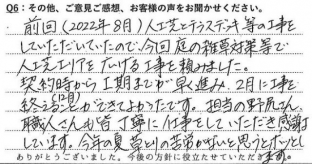 Q6：その他、ご意見ご感想、お客様の声をお聞かせください。
前回(2022年8月)人工芝とテラスデッキ等の工事を
していただいていたので、今回庭の雑草対策等で
人工芝エリアをだける工事を頼みました。
契約時から工期までが早く進み、2月に工事を
(12月)
終えることができてよかったです。担当の野尻さん、
職人さんも皆丁寧に仕事をしていただき感謝
しています。今年の夏草とりの苦労がないと思うとホッとし
ありがとうございました。今後の方針に役立たせていただき
ます。